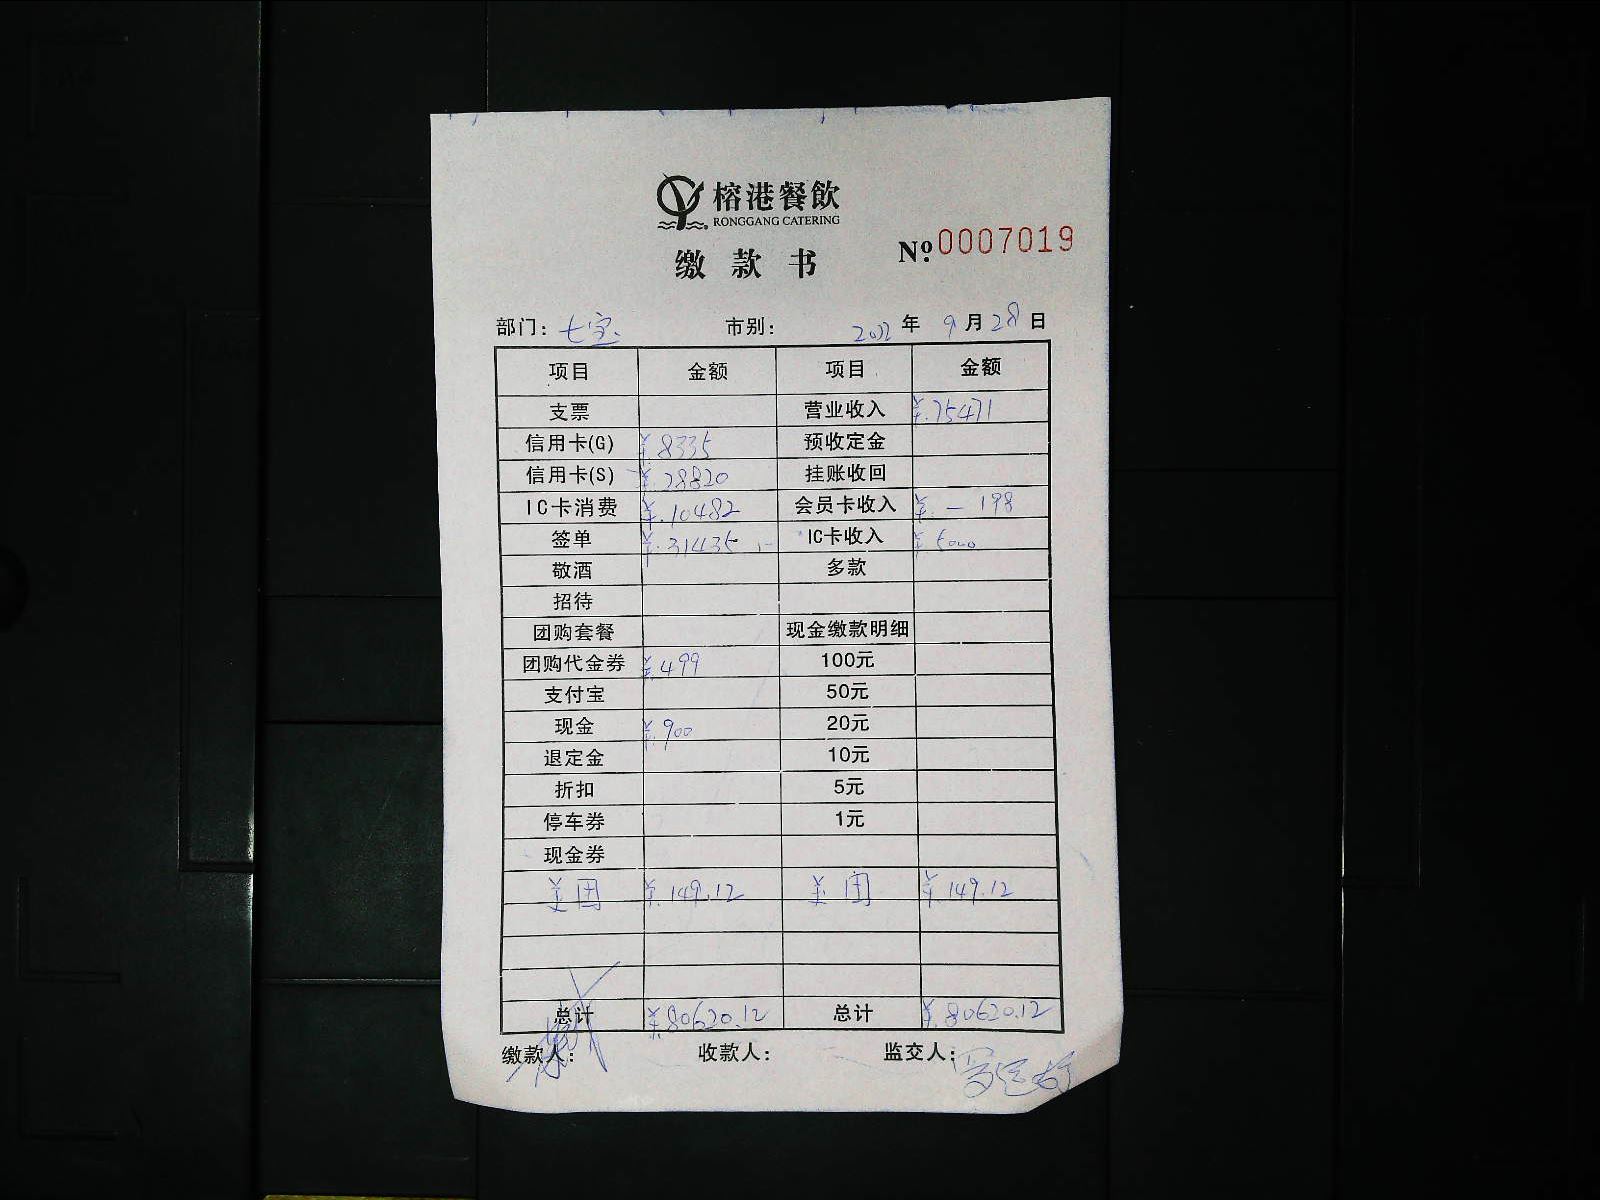 榕港餐飲
RONGGANG CATERING
缴款书 № 0007019
部门: 七宝 市别: 2022 年 9 月 28 日
项目 金额 项目 金额
支票 营业收入 ¥.75471
信用卡(G) ¥.8335 预收定金
信用卡(S) ¥.28820 挂账收回
IC卡消费 ¥.10482 会员卡收入 ¥.— 198
签单 ¥.31435 IC卡收入 ¥.5000
敬酒 多款
招待
团购套餐 现金缴款明细
团购代金券 ¥.499 100元
支付宝 50元
现金 ¥.900 20元
退定金 10元
折扣 5元
停车券 1元
现金券
美团 ¥.149.12 美团 ¥.149.12
总计 ¥.80620.12 总计 ¥.80620.12
缴款人: 收款人: 监交人: